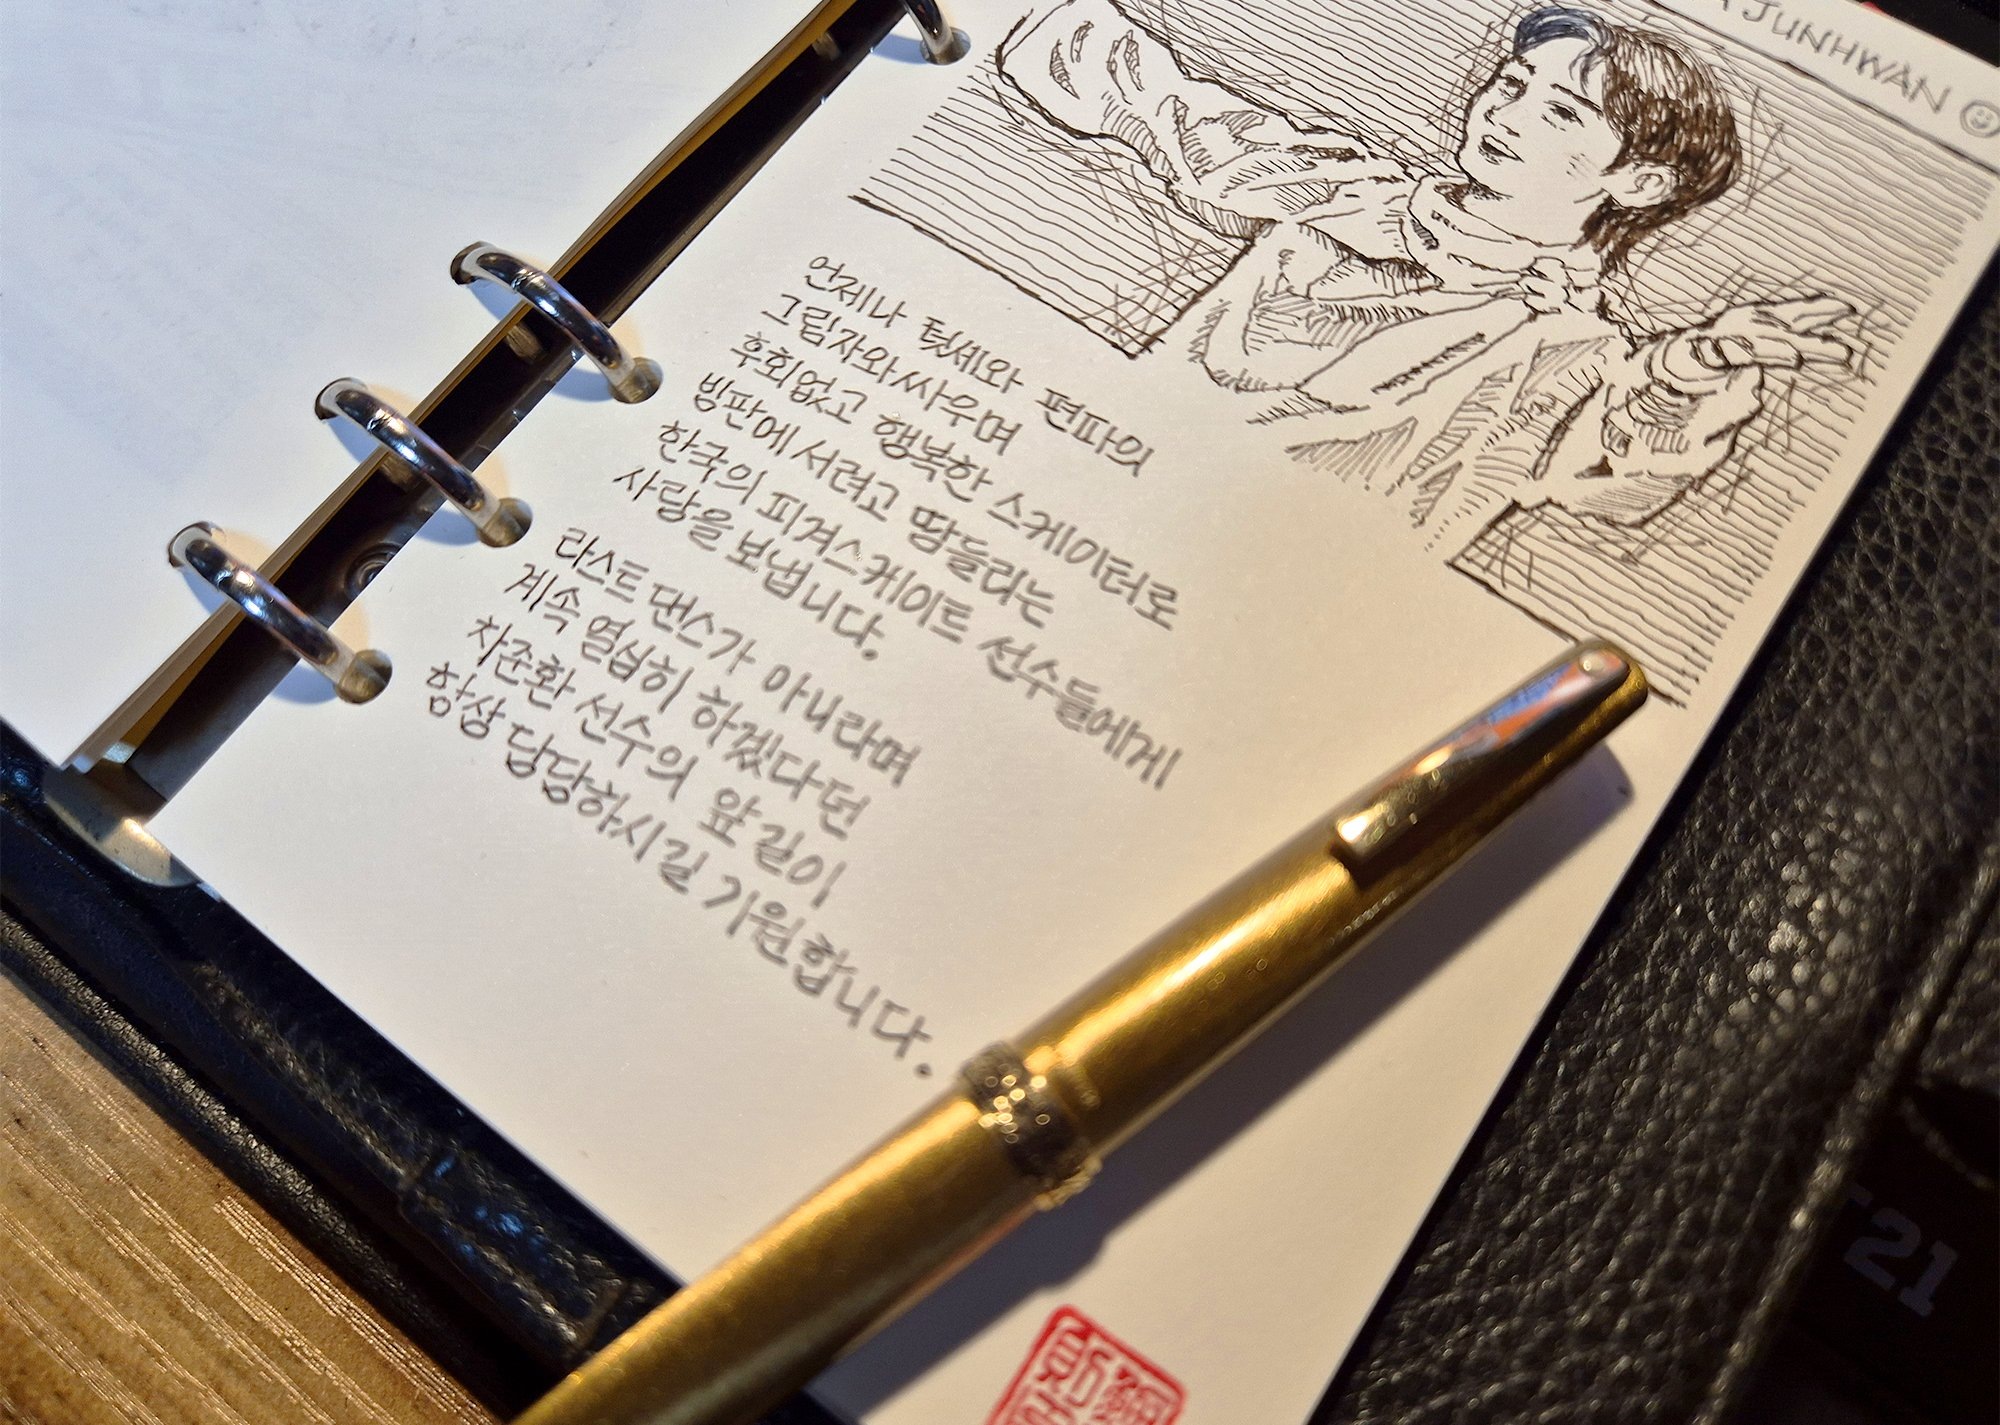 JUNHWAN
언제나 텃세와 편파의
그림자와 싸우며
후회없고 행복한 스케이터로
빙판에 서려고 땀흘리는
한국의 피겨스케이트 선수들에게
사랑을 보냅니다.
라스트 댄스가 아니라며
계속 열심히 하겠다던
차준환 선수의 앞길이
항상 당당하시길 기원합니다.
21